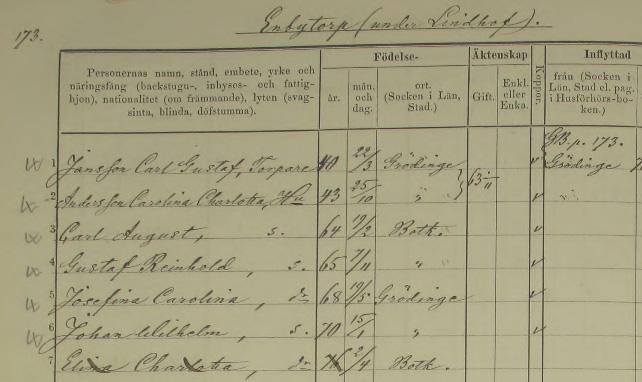 173.
Enbytorp (under Lindhof).
Personernas namn, stånd, embete, yrke och
näringsfång (backstugu-, inhyses- och fattig-
hjon), nationalitet (om främmande), lyten (svag-
sinta, blinda, döfstumma).
Födelse-
år.
mån.
och
dag.
ort.
(Socken i Län,
Stad.)
Äktenskap
Gift.
Enkl.
eller
Enka.
Koppor.
Inflyttad
från (Socken i
Län, Stad el. pag.
i Husförhörs-bo-
ken.)
GB. p. 173.
1 Jansson Carl Gustaf, Torpare 40 22/3 Grödinge v Grödinge
2 Andersson Carolina Charlotta, Hu 43 25/10 " 63 11 v "
3 Carl August, s. 64 19/2 Botk. v
4 Gustaf Reinhold, s. 65 7/11 " v
5 Josefina Carolina, dr 68 19/5 Grödinge v
6 Johan Wilhelm, s. 70 15/1 " v
7 Elina Charlotta, dr 76 2/4 Botk.